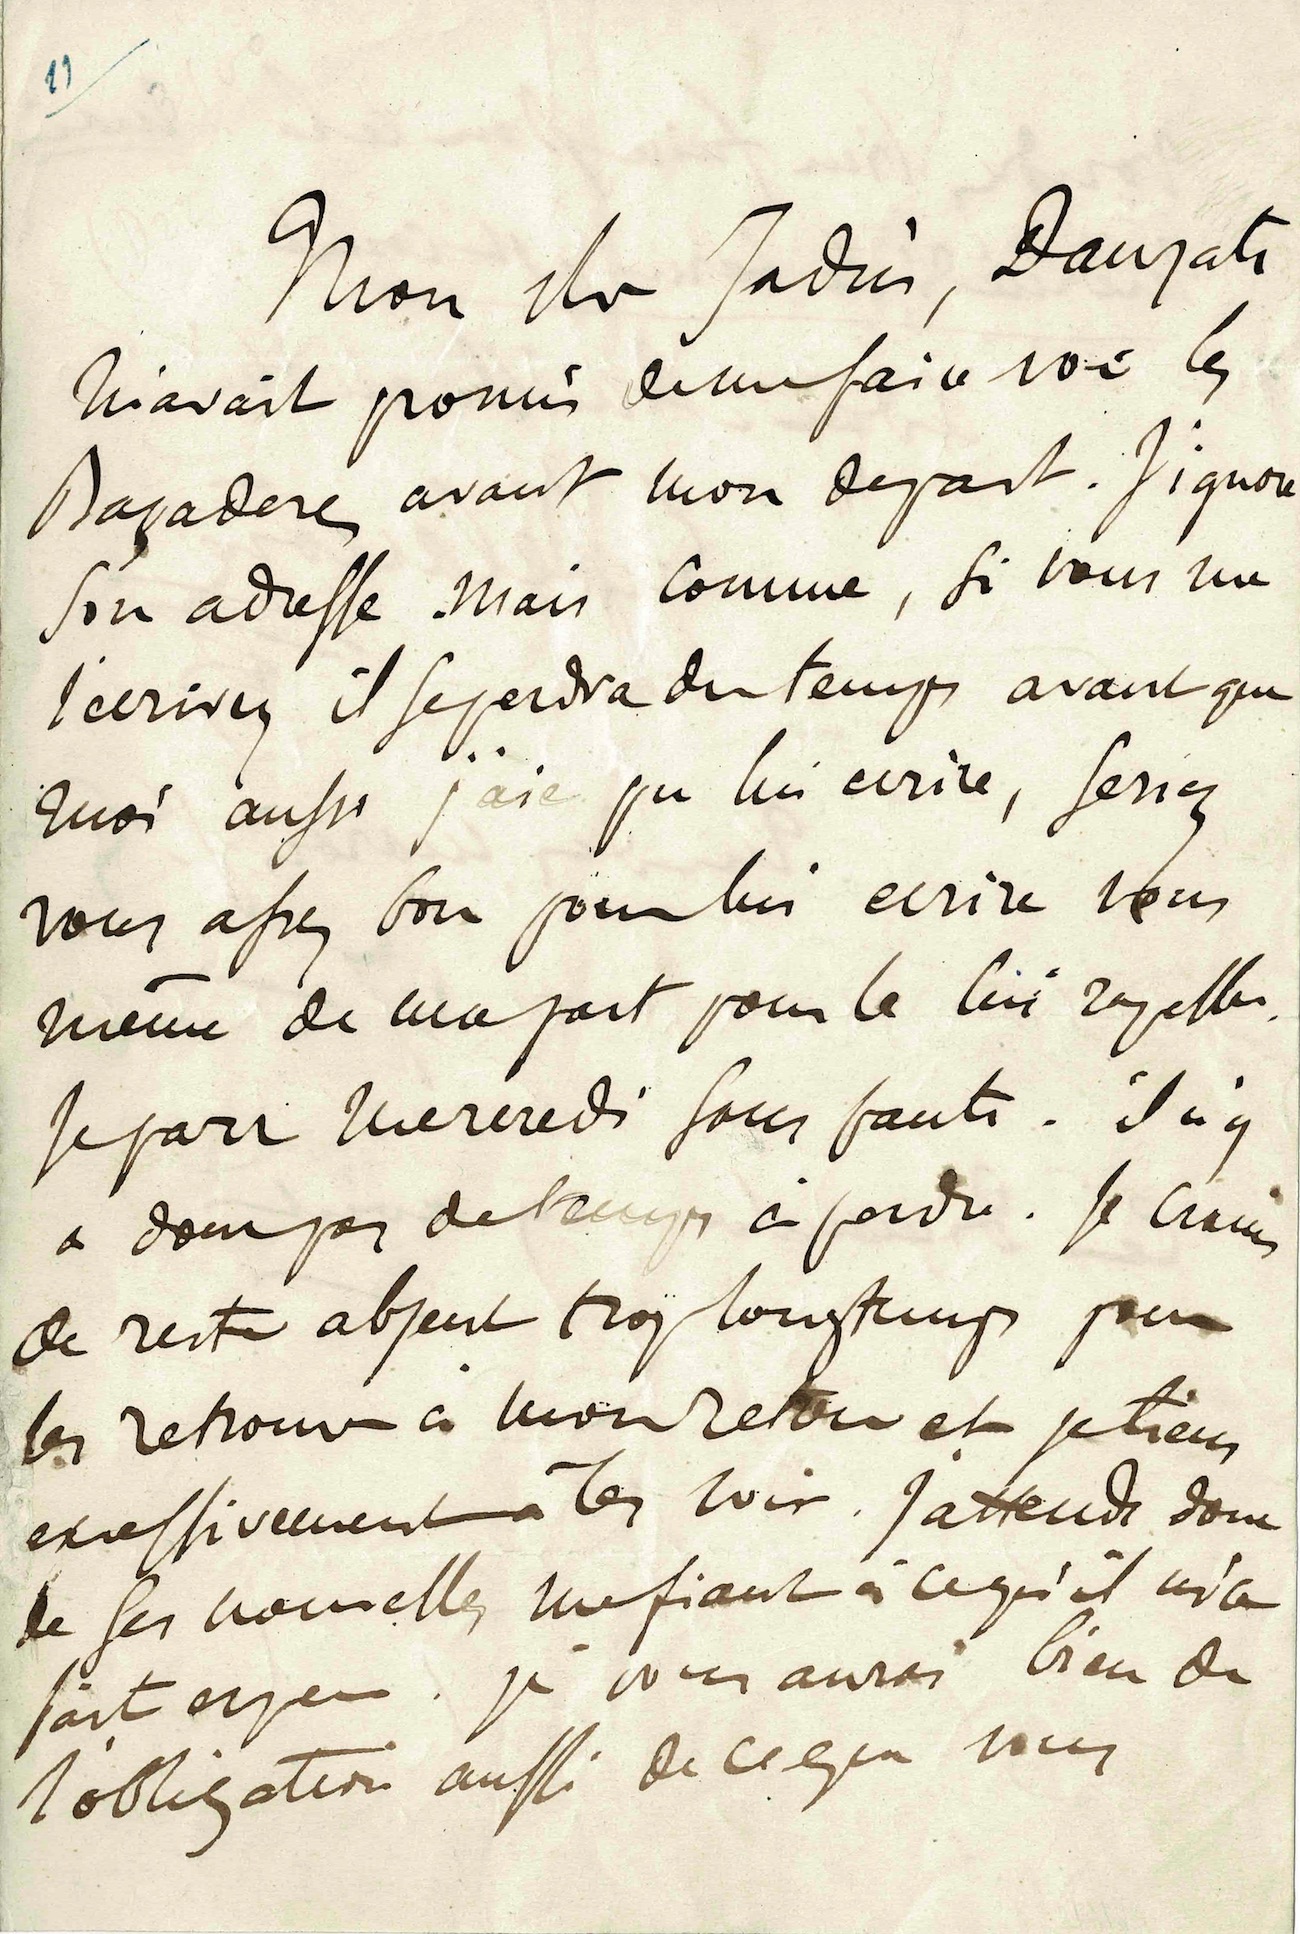 11
Mon cher Jadin, Dauzats
m'avait promis de me faire voir les
Bayaderes avant mon depart. J'ignore
son adresse mais comme, si vous me
l'ecrivez il se perdra du temps avant que
moi aussi j'aie pu lui ecrire, seriez
vous assez bon pour lui ecrire vous
même de ma part pour le lui rappeller.
Je pars mercredi sans faute. il n'y
a donc pas de temps à perdre. Je crains
de rester absent trop longtemps pour
les retrouver à mon retour et je tiens
excessivement à les voir. J'attends donc
de ses nouvelles me fiant à ce qu'il m'a
fait esperer. je vous aurai bien de
l'obligation aussi de ce que vous